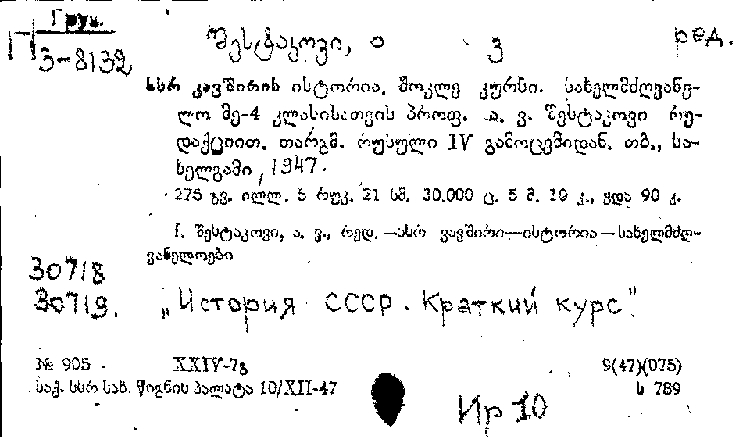 Груз.
П З-8132
შესტაკოვი, ა. ვ. რედ.
სსრ კავშირის ისტორია. მოკლე კურსი. სახელმძღვანე-
ლო მე-4 კლასისათვის პროფ. ა. ვ. შესტაკოვი რე-
დაქციით. თარგმ. რუსული IV გამოცემიდან. თბ., სა-
ხელგამი, 1947.
275 გვ. ილლ. 5 რუკ. 21 სმ. 30.000 ც. 5 მ. 10 კ., ყდა 90 კ.
I. შესტაკოვი, ა. ვ., რედ. —სსრ კავშირი—ისტორია—სახელმძღ-
ვანელოები
30718
30719. „История СССР. Краткий курс".
№ 905 XXIV-7ა 9(47)(075)
საქ. სსრ სახ. წიგნის პალატა 10/XII-47 ს 789
Ир 10